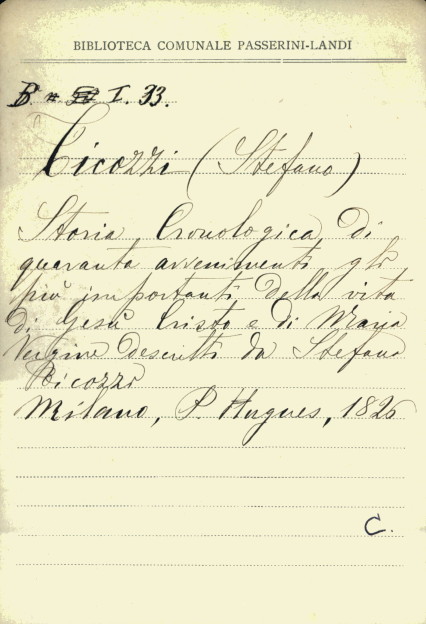 BIBLIOTECA COMUNALE PASSERINI-LANDI
B I. 33.
Ticozzi (Stefano)
Storia Cronologica di
quaranta avvenimenti gli
più importanti della vita
di Gesù Cristo e di Maria
Vergine descritti da Stefano
Ticozzi
Milano, P. Hugues, 1826
C.